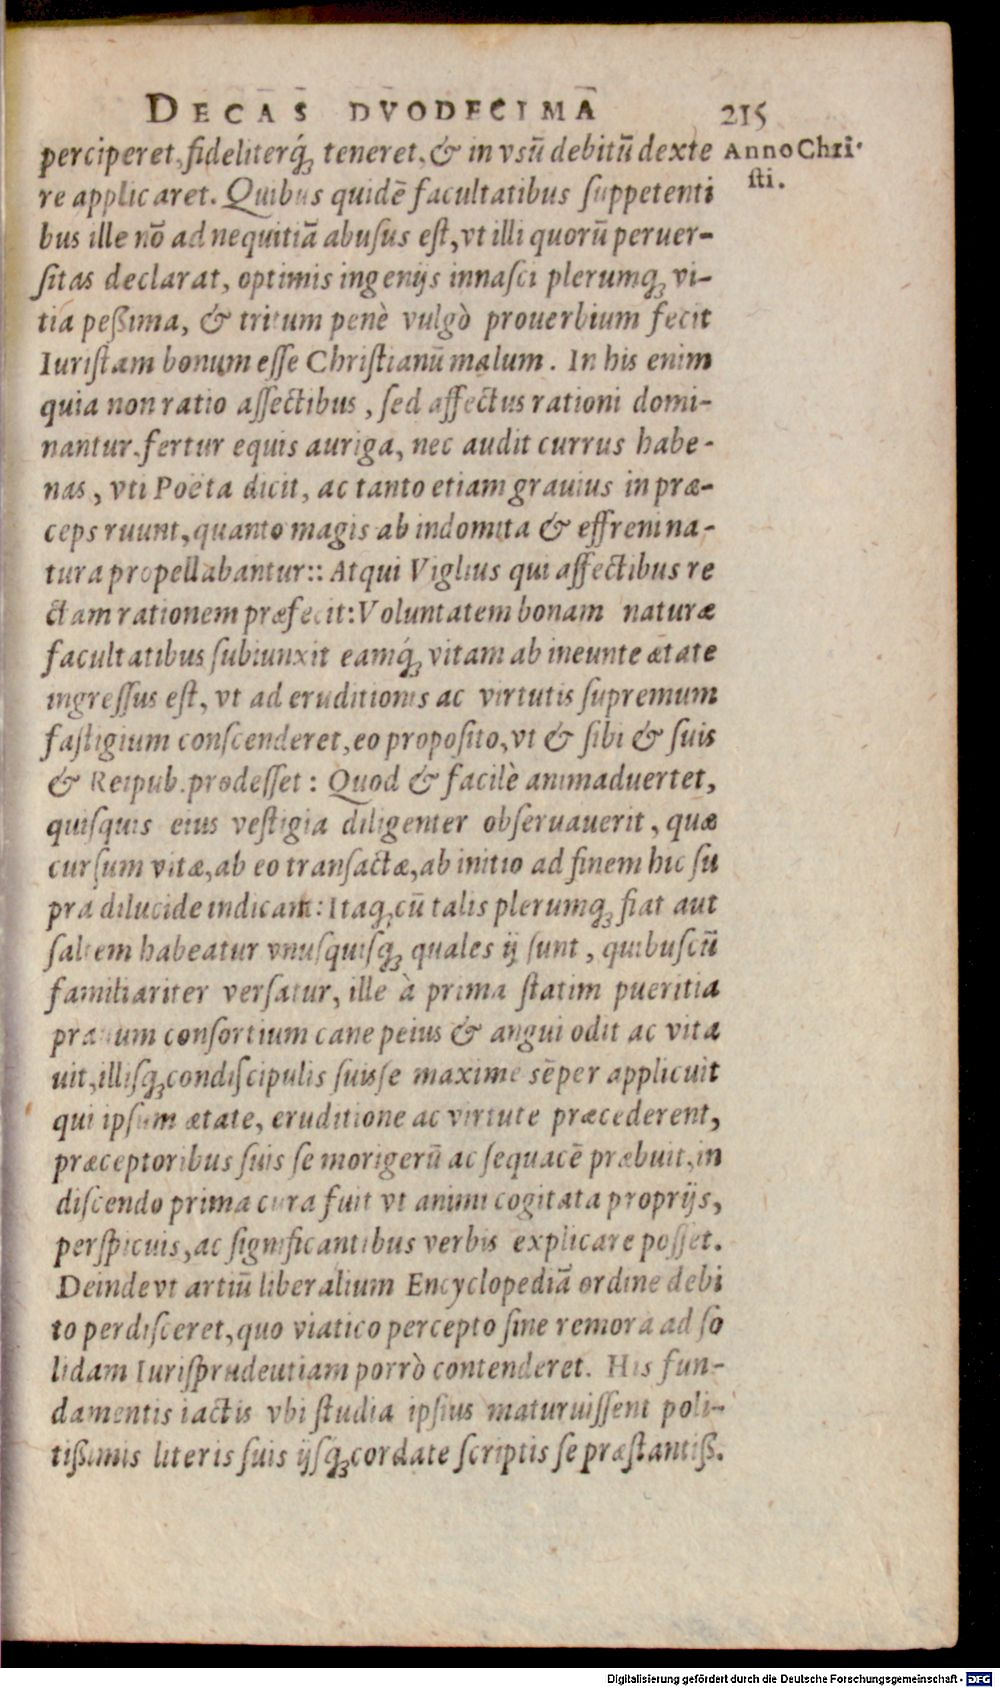 DECAS DVODECIMA 215
perciperet, fideliterq́ꝫ teneret, & in vsū debitū dexte
Anno Chri-
sti.
re applicaret. Quibus quidē facultatibus ſuppetenti
bus ille nō ad nequitiā abuſus eſt, vt illi quorū peruer-
ſitas declarat, optimis ingenijs innaſci plerumqꝫ vi-
tia peßima, & tritum penè vulgò prouerbium fecit
Iuriſtam bonum eſſe Chriſtianū malum. In his enim
quia non ratio aſſectibus, ſed affectus rationi domi-
nantur. fertur equis auriga, nec audit currus habe-
nas, vti Poëta dicit, ac tanto etiam grauius in præ-
ceps ruunt, quanto magis ab indomita & effreni na-
tura propellabantur:: Atqui Viglius qui affectibus re
ctam rationem præfecit: Voluntatem bonam naturæ
facultatibus ſubiunxit eamq́ꝫ vitam ab ineunte ætate
ingreſſus eſt, vt ad eruditionis ac virtutis ſupremum
faſtigium conſcenderet, eo propoſito, vt & ſibi & ſuis
& Reipub. prodeſſet: Quod & facilè animaduertet,
quiſquis eius veſtigia diligenter obſeruauerit, quæ
curſum vitæ, ab eo tranſactæ, ab initio ad finem hic ſu
pra dilucide indicant: Itaqꝫ cū talis plerumqꝫ fiat aut
ſaltem habeatur vnuſquiſq́ꝫ quales ij ſunt, quibuſcū
familiariter verſatur, ille à prima ſtatim pueritia
prauum conſortium cane peius & angui odit ac vita
uit, illiſqꝫ condiſcipulis ſuisſe maxime sēper applicuit
qui ipſum ætate, eruditione ac virtute præcederent,
præceptoribus ſuis ſe morigerū ac ſequacē præbuit, in
diſcendo prima cura fuit vt animi cogitata proprijs,
perſpicuis, ac ſignificantibus verbis explicare poſſet.
Deinde vt artiū liberalium Encyclopediā ordine debi
to perdiſceret, quo viatico percepto ſine remora ad ſo
lidam Iuriſprudeutiam porrò contenderet. His fun-
damentis iactis vbi ſtudia ipſius maturuiſſent poli-
tißimis literis ſuis ijſq́ꝫ cordate ſcriptis ſe præſtantiß.
Digitalisierung gefördert durch die Deutsche Forschungsgemeinschaft - DFG